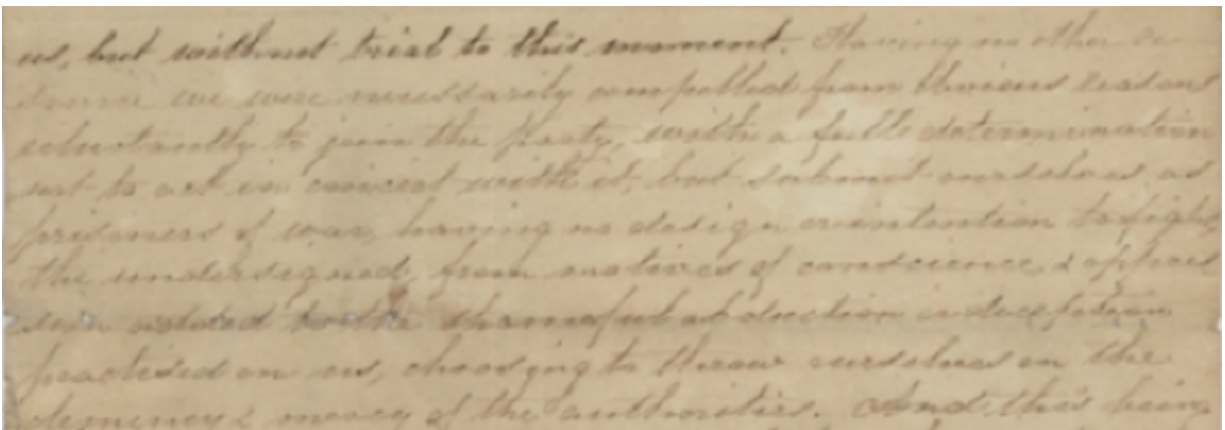 us, but without trial to this moment. Having no other re-
source we were necessarily compelled from obvious reasons
reluctantly to join the party, with a full determination
not to act in concert with it, but submit ourselves as
prisoners of war, having no design or intention to fight,
the undersigned, from motives of conscience, & oppres
sion added to the shameful abduction & deception
practised on us, choosing to throw ourselves on the
clemency & mercy of the authorities. And this being